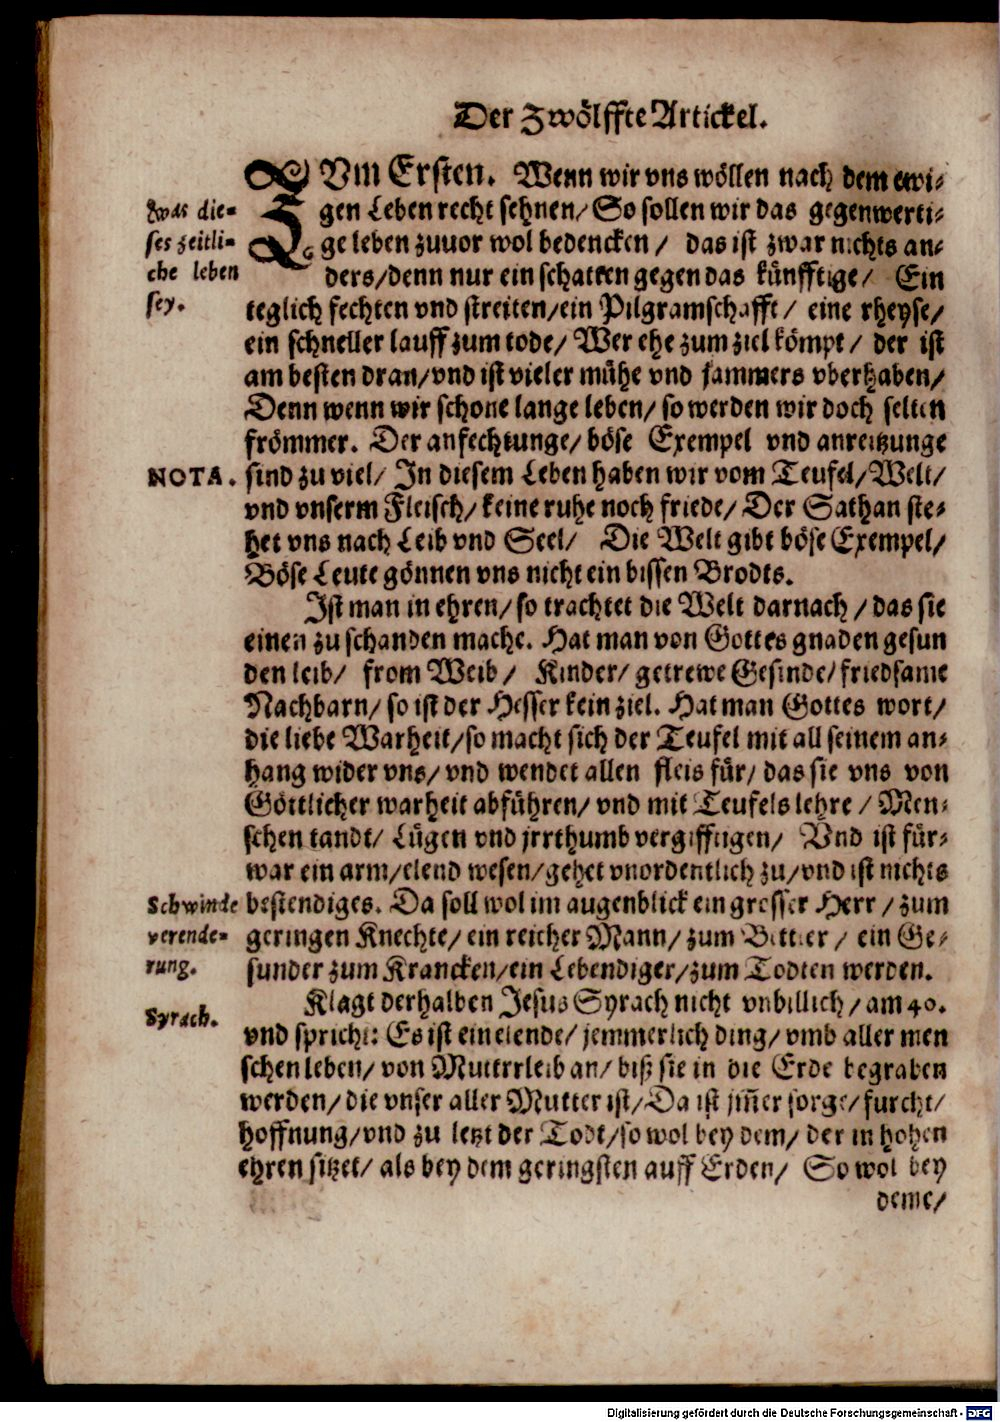 Der Zwölffte Artickel.
ZVm Ersten. Wenn wir vns wöllen nach dem ewi-
gen Leben recht sehnen/ So sollen wir das gegenwerti-
ge leben zuuor wol bedencken/ das ist zwar nichts an-
ders/denn nur ein schatten gegen das künfftige/ Ein
teglich fechten vnd streiten/ein Pilgramschafft/ eine rheyse/
ein schneller lauff zum tode/ Wer ehe zum ziel kömpt/ der ist
am besten dran/vnd ist vieler mühe vnd jammers vberhaben/
Denn wenn wir schone lange leben/ so werden wir doch selten
frömmer. Der anfechtunge/ böse Exempel vnd anreitzunge
sind zu viel/ In diesem Leben haben wir vom Teufel/Welt/
vnd vnserm Fleisch/ keine ruhe noch friede/ Der Sathan ste-
het vns nach Leib vnd Seel/ Die Welt gibt böse Exempel/
Böse Leute gönnen vns nicht ein bissen Brodts.
Ist man in ehren/ so trachtet die Welt darnach/ das sie
einen zu schanden mache. Hat man von Gottes gnaden gesun
den leib/ from Weib/ Kinder/ getrewe Gesinde/ friedsame
Nachbarn/ so ist der Hesser kein ziel. Hat man Gottes wort/
die liebe Warheit/so macht sich der Teufel mit all seinem an-
hang wider vns/ vnd wendet allen fleis für/ das sie vns von
Göttlicher warheit abführen/ vnd mit Teufels lehre/ Men-
schen tandt/ Lügen vnd jrrthumb vergifftigen/ Vnd ist für-
war ein arm/elend wesen/gehet vnordentlich zu/vnd ist nichts
bestendiges. Da soll wol im augenblick ein grosser Herr/ zum
geringen Knechte/ ein reicher Mann/ zum Bettler/ ein Ge-
sunder zum Krancken/ein Lebendiger/zum Todten werden.
Klagt derhalben Jesus Syrach nicht vnbillich/ am 40.
vnd spricht: Es ist ein elende/ jemmerlich ding/ vmb aller men
schen leben/ von Mutterleib an/ biß sie in die Erde begraben
werden/ die vnser aller Mutter ist/ Da ist jm̅er sorge/ furcht/
hoffnung/vnd zu letzt der Todt/so wol bey dem/ der in hohen
ehren sitzet/ als bey dem geringsten auff Erden/ So wol bey
deme/
Was die-
ses zeitli-
che leben
sey.
NOTA.
Schwinde
verende-
rung.
Syrach.
Digitalisierung gefördert durch die Deutsche Forschungsgemeinschaft - DFG